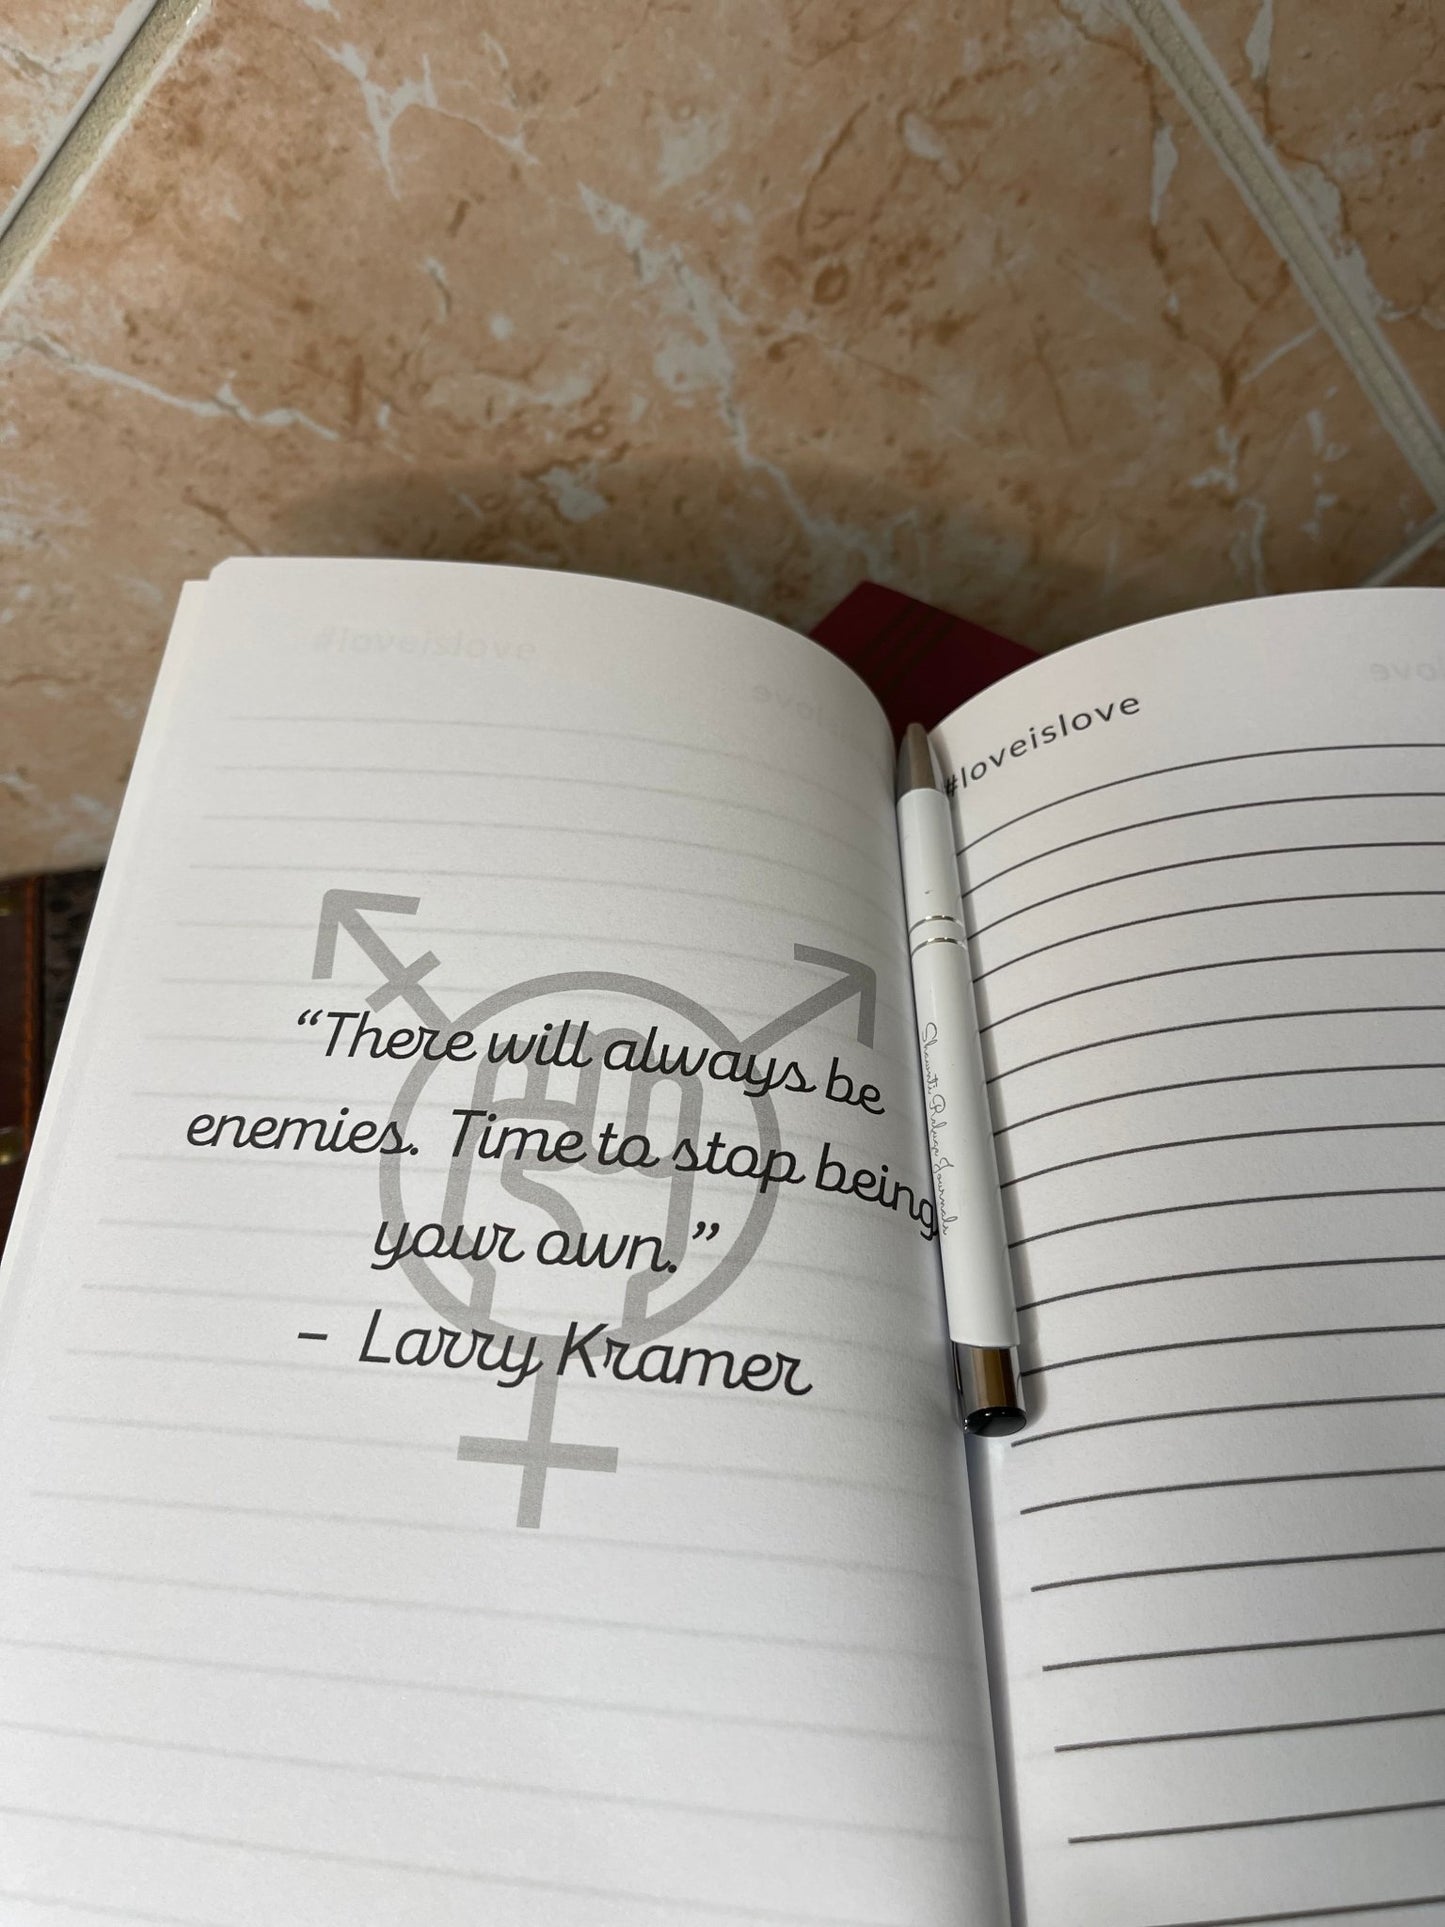 “There will always be
enemies. Time to stop being
your own.”
– Larry Kramer
#loveislove
#loveislove